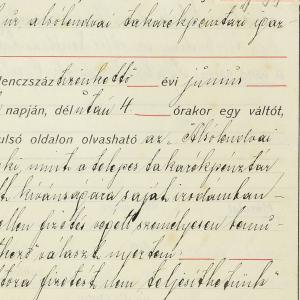 az alsólendvai takarékpénztár
lenczszáz tizenkettő évi június
napján, délután 4 órakor egy váltót,
ulsó oldalon olvasható az „Alsólendvai
ki, mint a telepes takarékpénztár
t kívánságára saját irodámban
ellen fizetés végett személyesen bemu-
választ nyertem
fizetést nem teljesíthetünk"